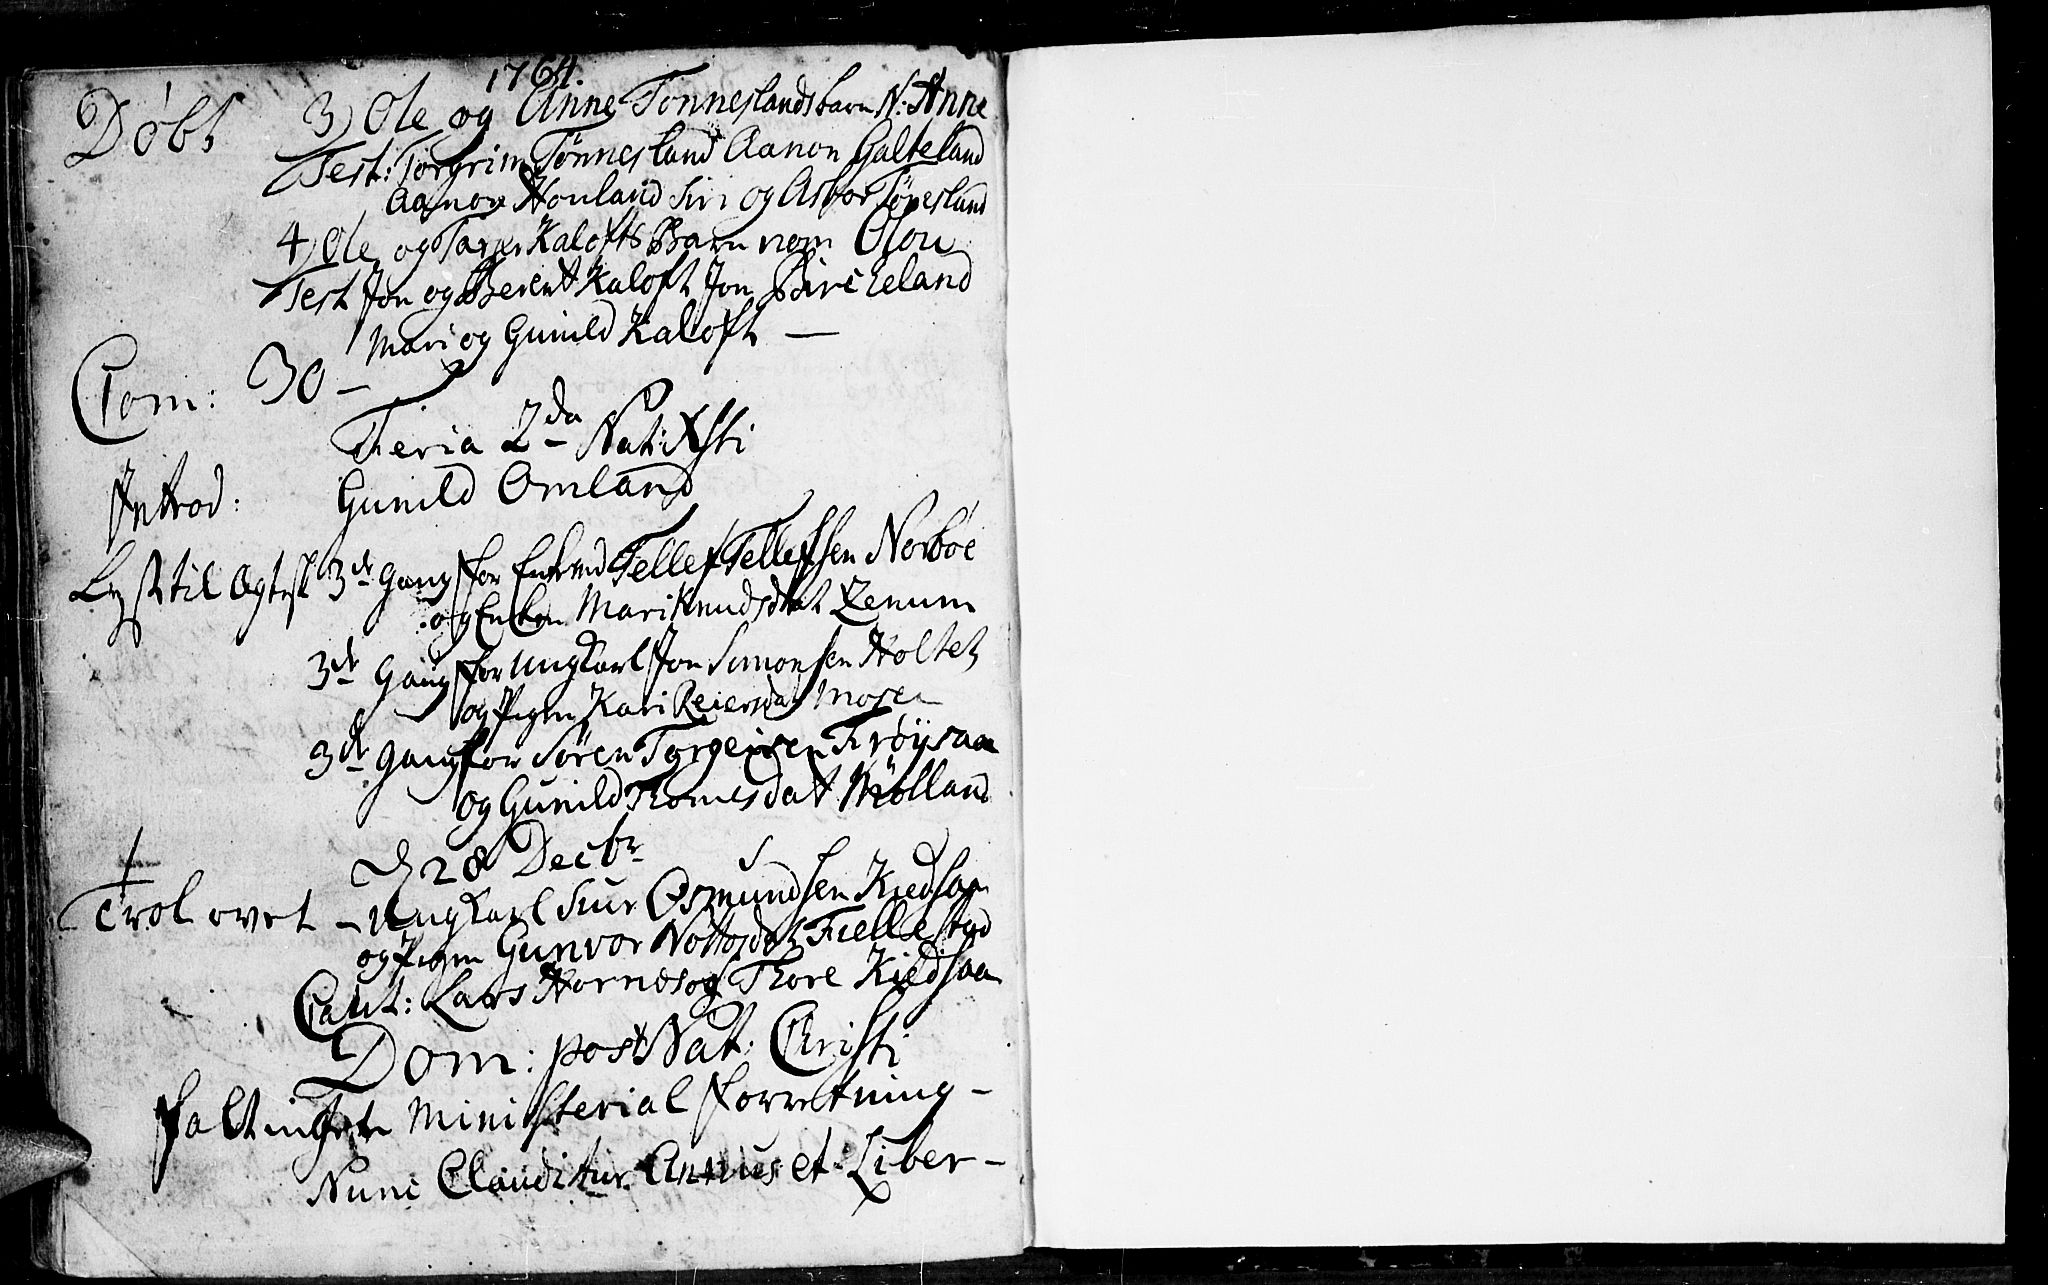 1764.
Døbt 3) Ole og Anne Tonneslands barn N: Anne
Test: Torgrim Tønnesland Aanon Galteland
Aanon Honland Siri og Asbor Tønesland
4) Ole og Taran Kalofts Barn nom Olou
Test Jon og Berent Kaloft Jon Birceland
Mari og Gunild Kaloft —
Com: 30 —
Feria 2da Nat: Xsti
Introd: Gunild Omland
Lyst til Ægtesk 3de Gang for Enkemd Tellef Tellefsen Norbøe
og Enken Mari Knudsdat Lenum
3de Gang for Ung Karl Jon Simonsen Holtet
og Pigen Kari Reiersdat Mosen
3de Gang for Søren Torgeirsen Frøysaa
og Gunild Thomesdat Mölland
D 28 Decbr
Trolovet – Ung Karl Siur Osmundsen Kiedsaa
og Pigen Gunvor Nottosdat Fiellestad
Caut: Lars Hornes og Thore Kiedsaa
Dom: post Nat: Christi
faldt intet Ministerial Forretning –
Nunc Clauditur Annus et Liber –